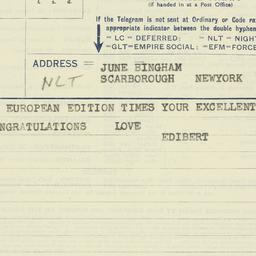 £. s. d.
(if handed in at a Post Office)
If the Telegram is not sent at Ordinary or Code ra
appropriate indicator between the double hyphen
- LC - DEFERRED: - NLT - NIGH
-GLT-EMPIRE SOCIAL: -EFM-FORCE
ADDRESS = JUNE BINGHAM
NLT SCARBOROUGH NEWYORK
EUROPEAN EDITION TIMES YOUR EXCELLENT
NGRATULATIONS LOVE
EDIBERT